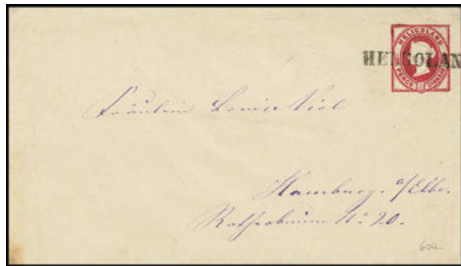 HELIGOLAND
HELGOLAN
Fräulein Louise Viol
Hamburg. a/Elbe.
Rothenbaum N: 20.